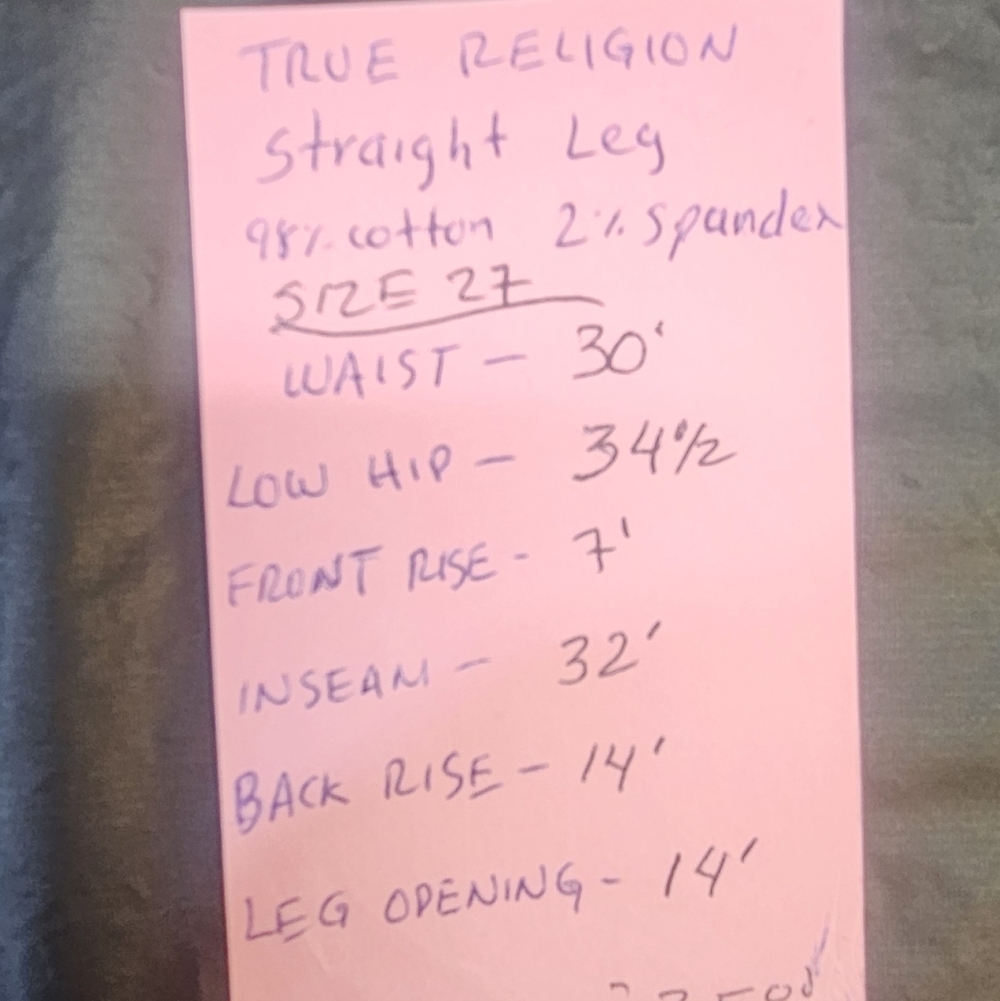 TRUE RELIGION
Straight Leg
98% cotton 2% spandex
SIZE 27
WAIST - 30'
LOW HIP - 34 1/2
FRONT RISE - 7'
INSEAM - 32'
BACK RISE - 14'
LEG OPENING - 14'